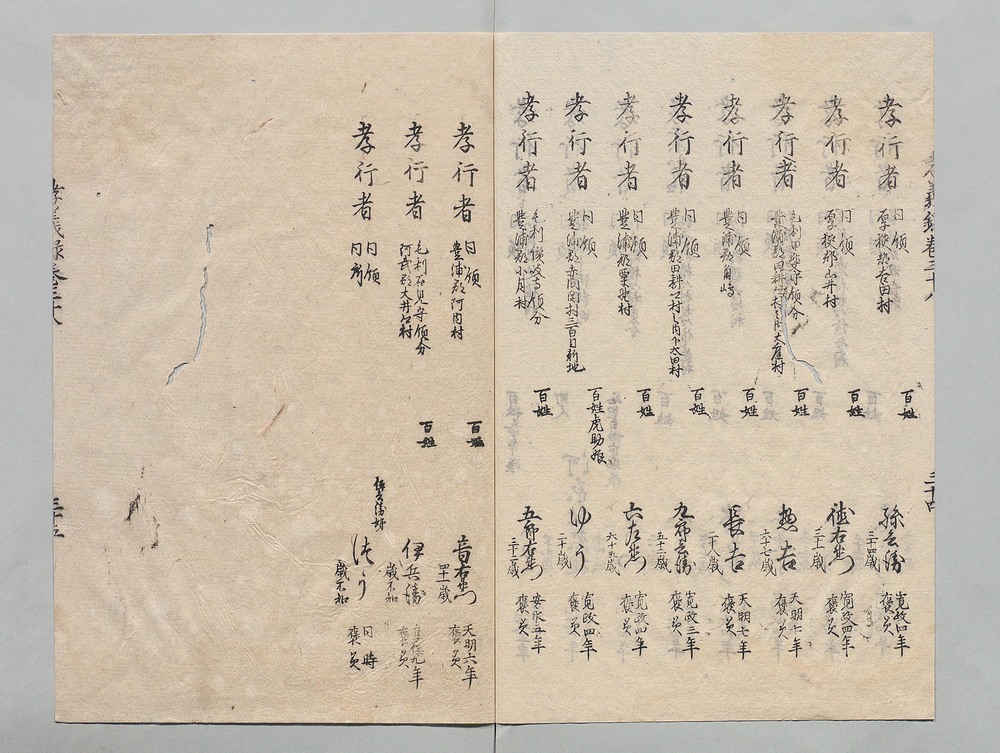 孝行者 同領 厚狭郡吉田村 百姓 孫兵衛 三十四歳 寛政四年 褒美
孝行者 同領 厚狭郡山井村 百姓 徳右衛門 三十一歳 寛政四年 褒美
孝行者 毛利甲斐守領分 豊浦郡田耕村之内大庭村 百姓 惣吉 六十七歳 天明七年 褒美
孝行者 同領 豊浦郡角嶋 百姓 長吉 二十八歳 天明七年 褒美
孝行者 同領 豊浦郡田耕村之内下太田村 百姓 九郎兵衛 五十二歳 寛政三年 褒美
孝行者 同領 豊浦郡粟野村 百姓 六左衛門 六十五歳 寛政四年 褒美
孝行者 同領 豊浦郡赤間関村三百目新地 百姓虎助娘 ゆう 二十歳 寛政四年 褒美
孝行者 毛利讃岐守領分 豊浦郡小月村 百姓 五郎右衛門 三十二歳 安永五年 褒美
三十四
孝行者 同領 豊浦郡阿内村 百姓 音右衛門 四十一歳 天明六年 褒美
孝行者 毛利石見守領分 阿武郡大井村 百姓 伊兵衛 歳不知 享保九年 褒美
孝行者 同領 同所 伊兵衛娣 歳不知 同時 褒美
孝義録巻三十八
三十五